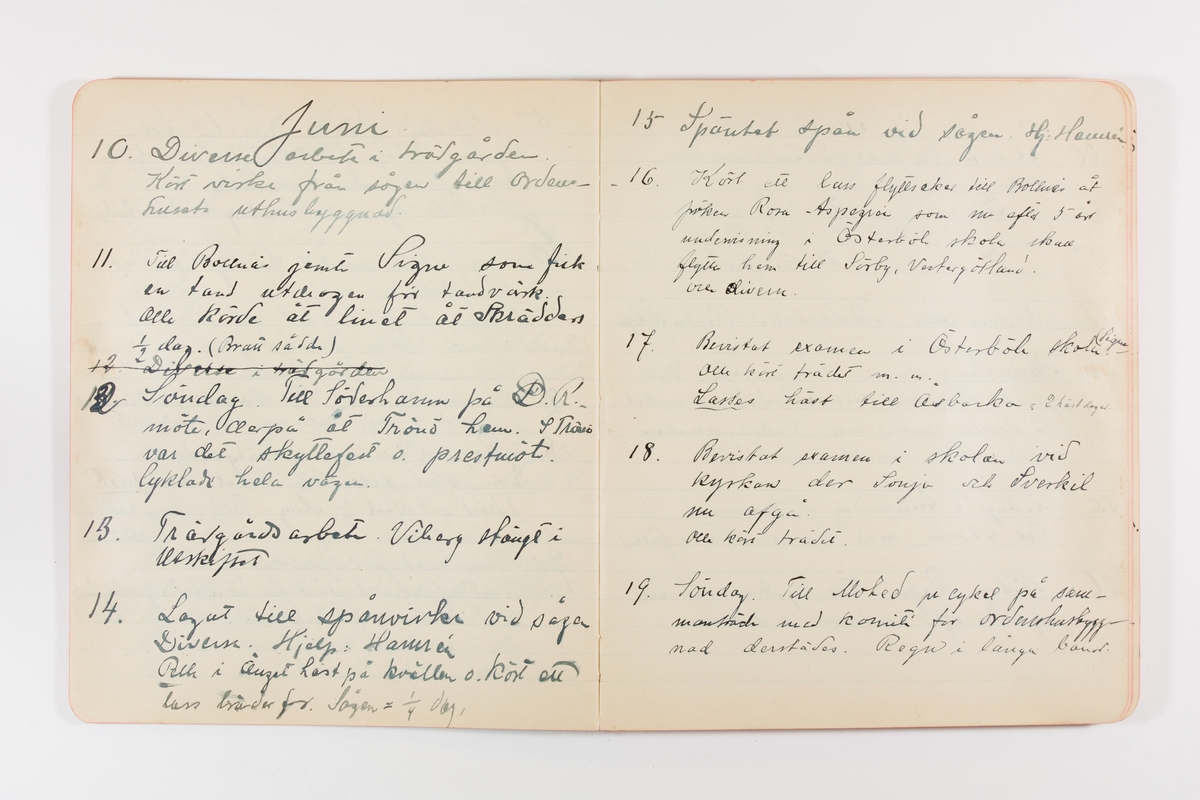 Juni
10. Diverse arbete i trädgården.
Kört virke från sågen till Ordens-
husets uthusbyggnad.
11. Till Bollnäs jemte Signe som fick
en tand utdragen för tandvärk.
Olle körde åt linet åt Skrädders
½ dag. (Bratt sådde)
12. Diverse i trädgården
12. Söndag. Till Söderhamn på D.R.-
möte, derpå åt Trönö hem. I Trönö
var det skyttefest o. prestmöte.
Cyklade hela vägen.
13. Trädgårdsarbete. Viberg stängt i
Utskiftet
14. Lagat till spånvirke vid sågen
Diverse. Hjelp: Hamrén
Pelle i änget häst på kvällen o. kört ett
lass bräder för. Sågen = ¼ dag.
15 Späntat spån vid sågen. Hj: Hamrén
16. Kört ett lass flyttsaker till Bollnäs åt
fröken Rosa Aspegren som nu efter 5 års
undervisning i Österböle skola skall
flytta hem till Sörby, Vestergötland.
diverse.
17. Bevistat examen i Österböle skola (Signe
Olle kört trädet m. m.
Lasses häst till Åsbacka = 2 hästdagar
18. Bevistat examen i skolan vid
kyrkan der Sonja och Sverkil
nu afgå.
Olle kört trädet.
19. Söndag. Till Mohed pr cykel på sam-
manträde med komité för ordenshusbygg-
nad derstädes. Regn i långa banor.